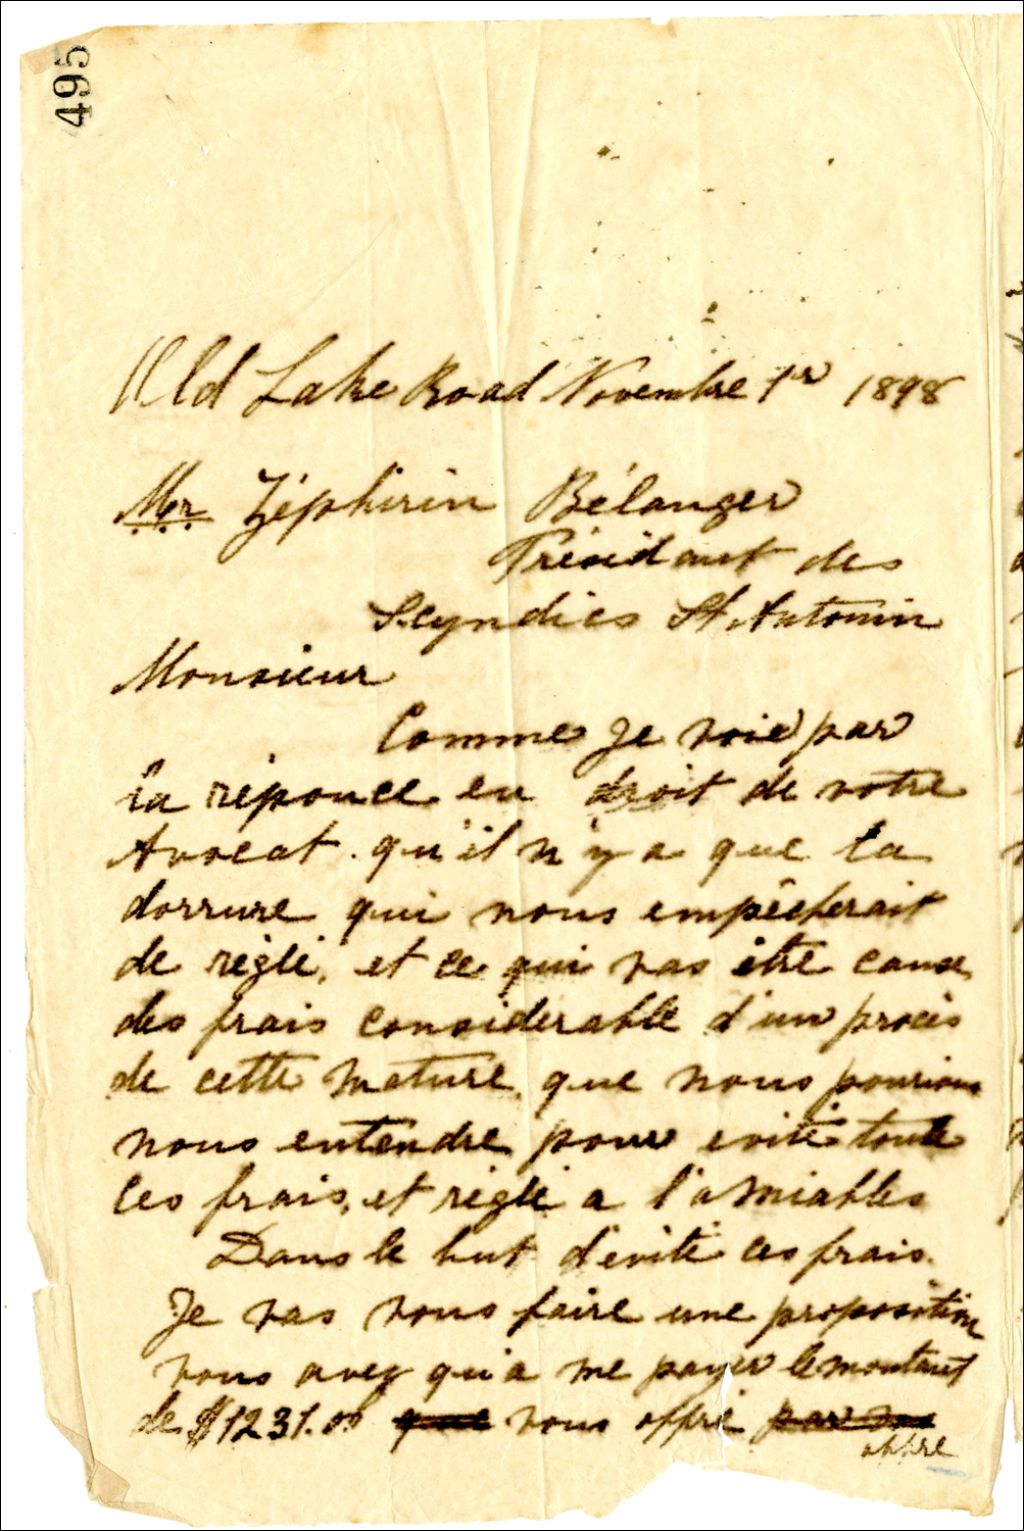 495
Old Lake Road Novembre 1er 1898
Mr Zéphirin Bélanger
Présidant des
Scyndics St Antonin
Monsieur
Comme Je voie par
la réponce en droit de votre
Avocat qu'il n'y a que la
dorrure qui nous empêcherait
de réglé, et ce qui vas être cause
des frais considerable d'un procès
de cette nature, que nous pourions
nous entendre pour evité toute
les frais, et réglé a l'amiables
Dans le but d'évité ces frais.
Je vas vous faire une proposition
vous avez qu'a me payer le montant
de $1231.00 que vous offre par vos
offre